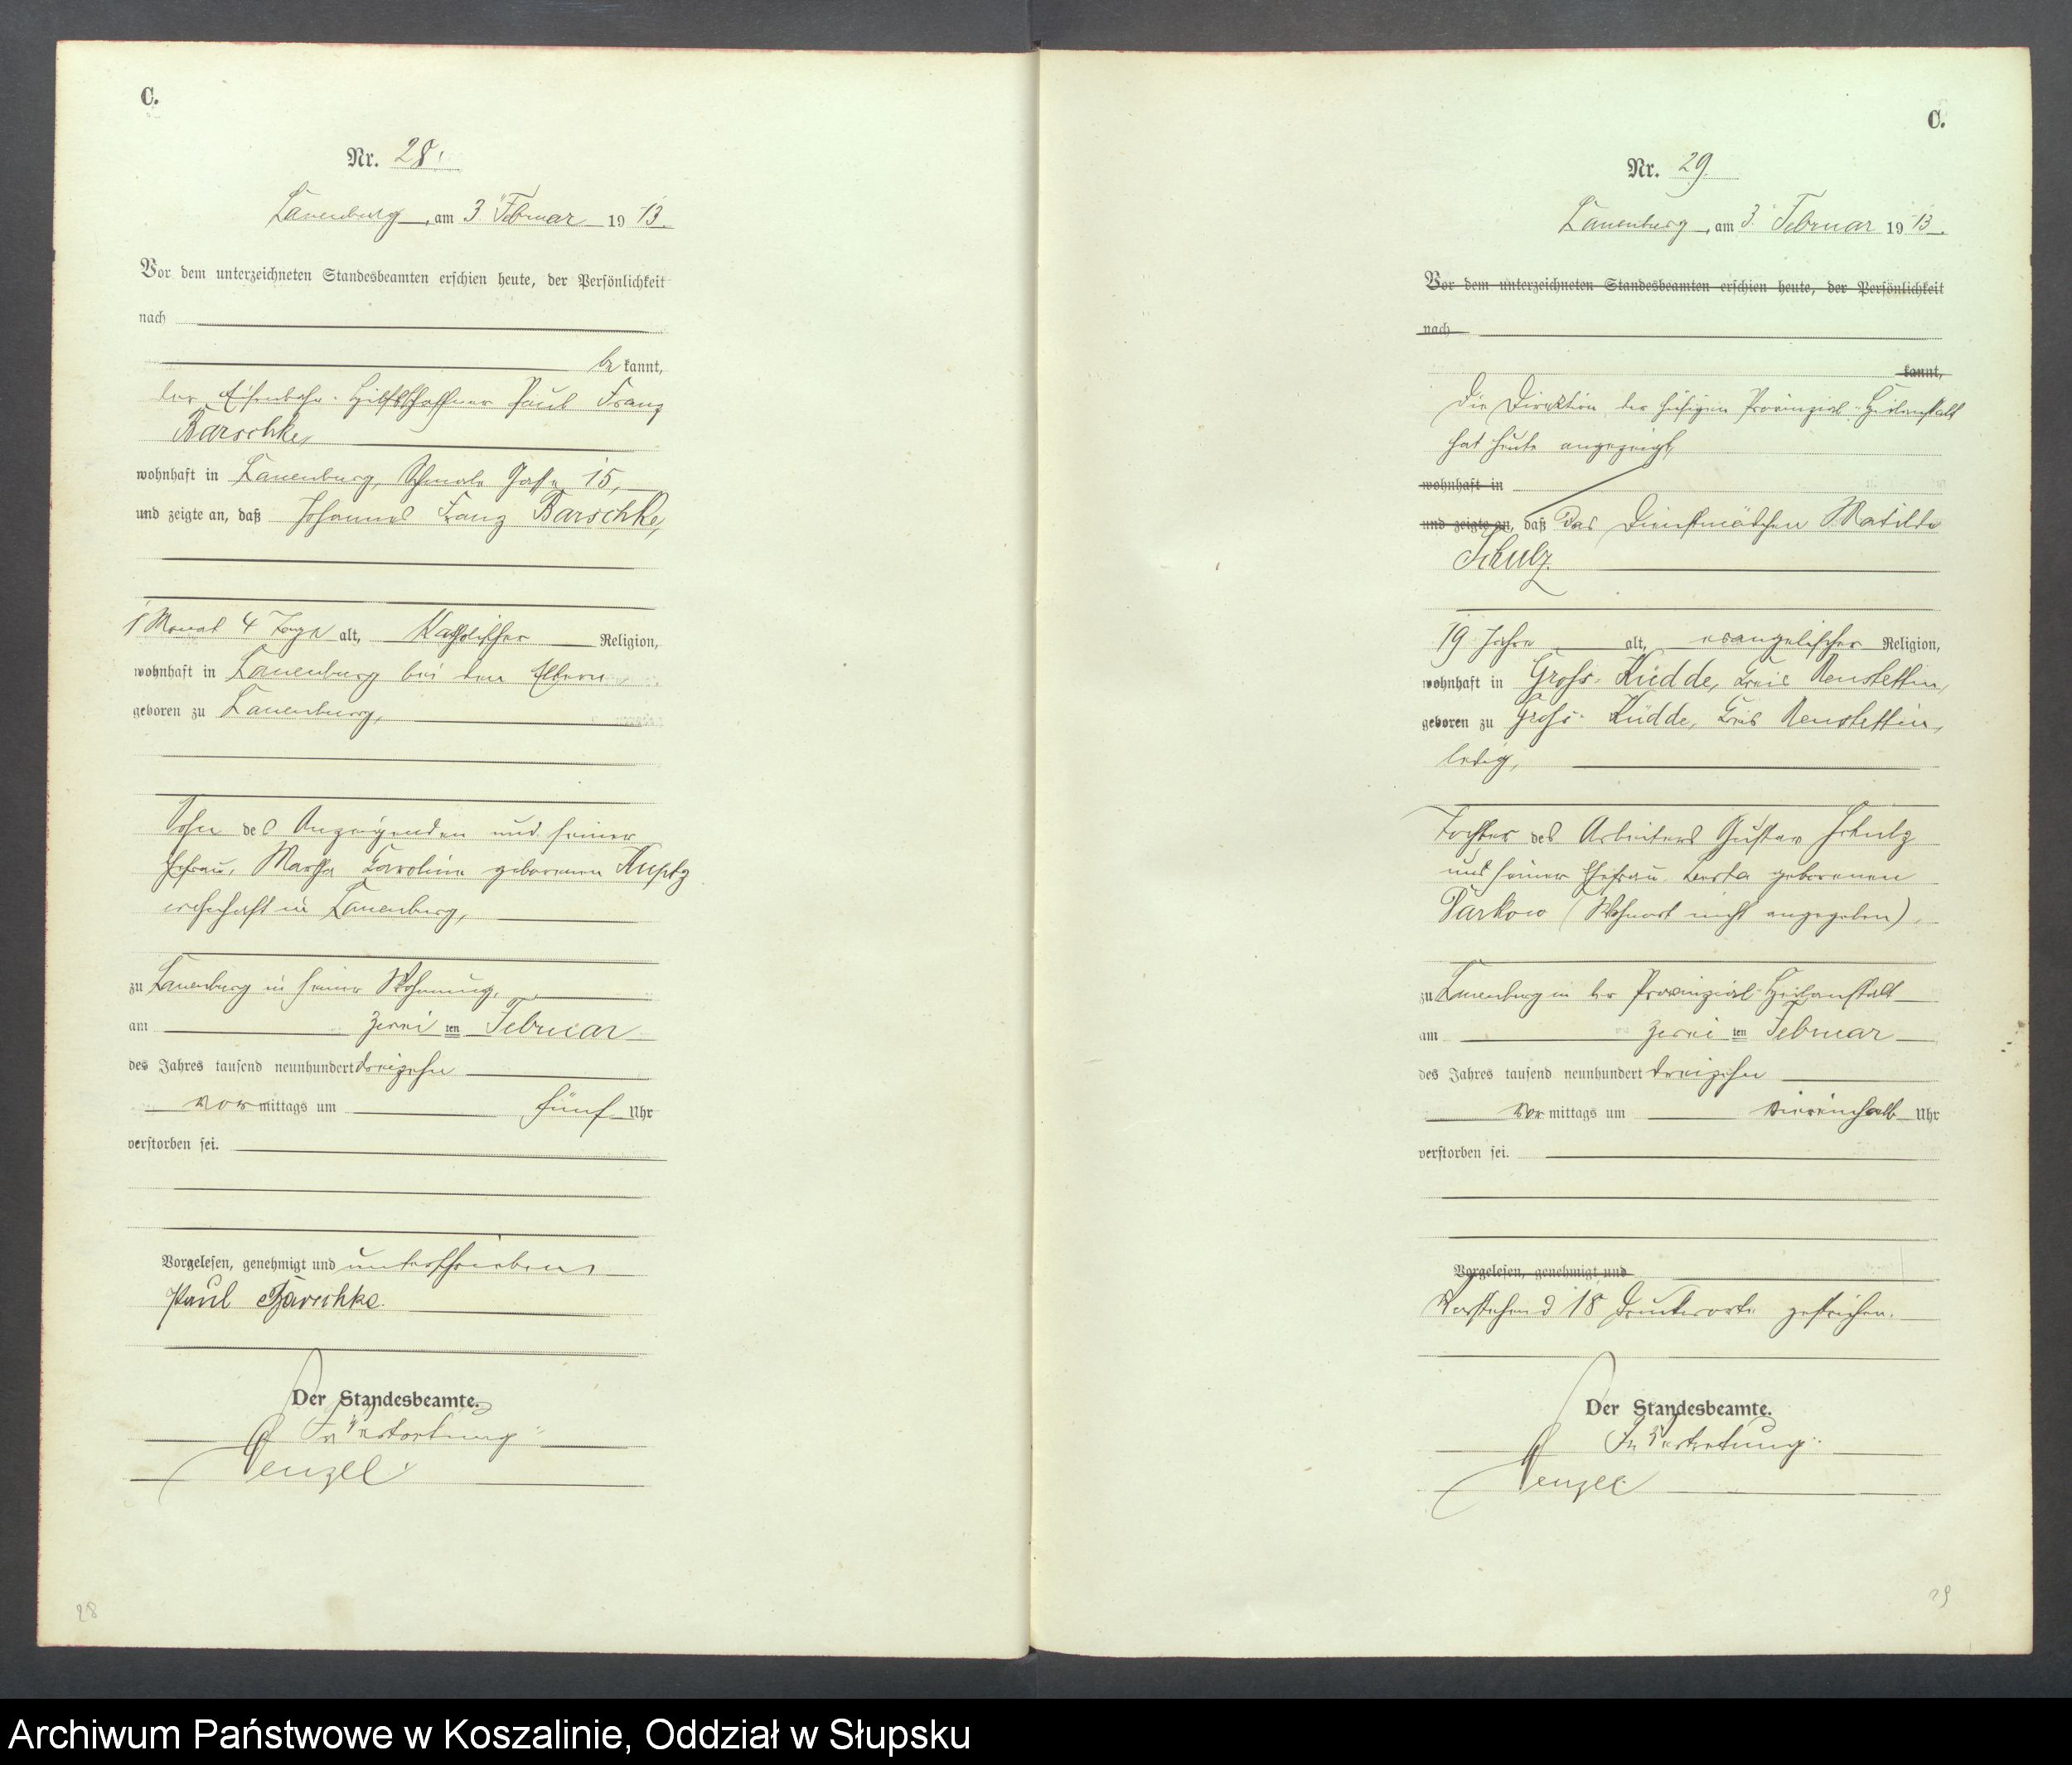 C.
Nr. 28.
Lauenburg, am 3. Februar 1913.
Vor dem unterzeichneten Standesbeamten erschien heute, der Persönlichkeit
nach
bekannt,
der Eisenbahn-Hilfsschaffner Paul Franz
Barschke,
wohnhaft in Lauenburg, Schmale Gasse 15,
und zeigte an, daß Johannes Franz Barschke,
1 Monat 4 Tage alt, Katholischer Religion,
wohnhaft in Lauenburg bei den Eltern
geboren zu Lauenburg,
Sohn des Anzeigenden und seiner
Ehefrau, Martha Karoline geborenen Kuptz
wohnhaft in Lauenburg,
zu Lauenburg in seiner Wohnung,
am zwei ten Februar
des Jahres tausend neunhundert dreizehn
vormittags um fünf Uhr
verstorben sei.
Vorgelesen, genehmigt und unterschrieben
Paul Barschke.
Der Standesbeamte.
In Vertretung
Wenzel.
28
C.
Nr. 29.
Lauenburg, am 3. Februar 1913.
Vor dem unterzeichneten Standesbeamten erschien heute, der Persönlichkeit
nach
kannt,
Die Direktion der hiesigen Provinzial-Heilanstalt
hat heute angezeigt,
wohnhaft in
und zeigte an, daß das Dienstmädchen Matilde
Schulz.
19 Jahre alt, evangelischer Religion,
wohnhaft in Gross-Küdde, Kreis Neustettin,
geboren zu Gross-Küdde, Kreis Neustettin,
ledig,
Tochter des Arbeiters Gustav Schulz
und seiner Ehefrau Berta geborenen
Parkow (Wohnort nicht angegeben),
zu Lauenburg in der Provinzial-Heilanstalt
am zwei ten Februar
des Jahres tausend neunhundert dreizehn
Vor mittags um viereinhalb Uhr
verstorben sei.
Vorgelesen, genehmigt und
Vorstehend 18 Druckworte gestrichen.
Der Standesbeamte.
In Vertretung:
Wenzel.
29
Archiwum Państwowe w Koszalinie, Oddział w Słupsku